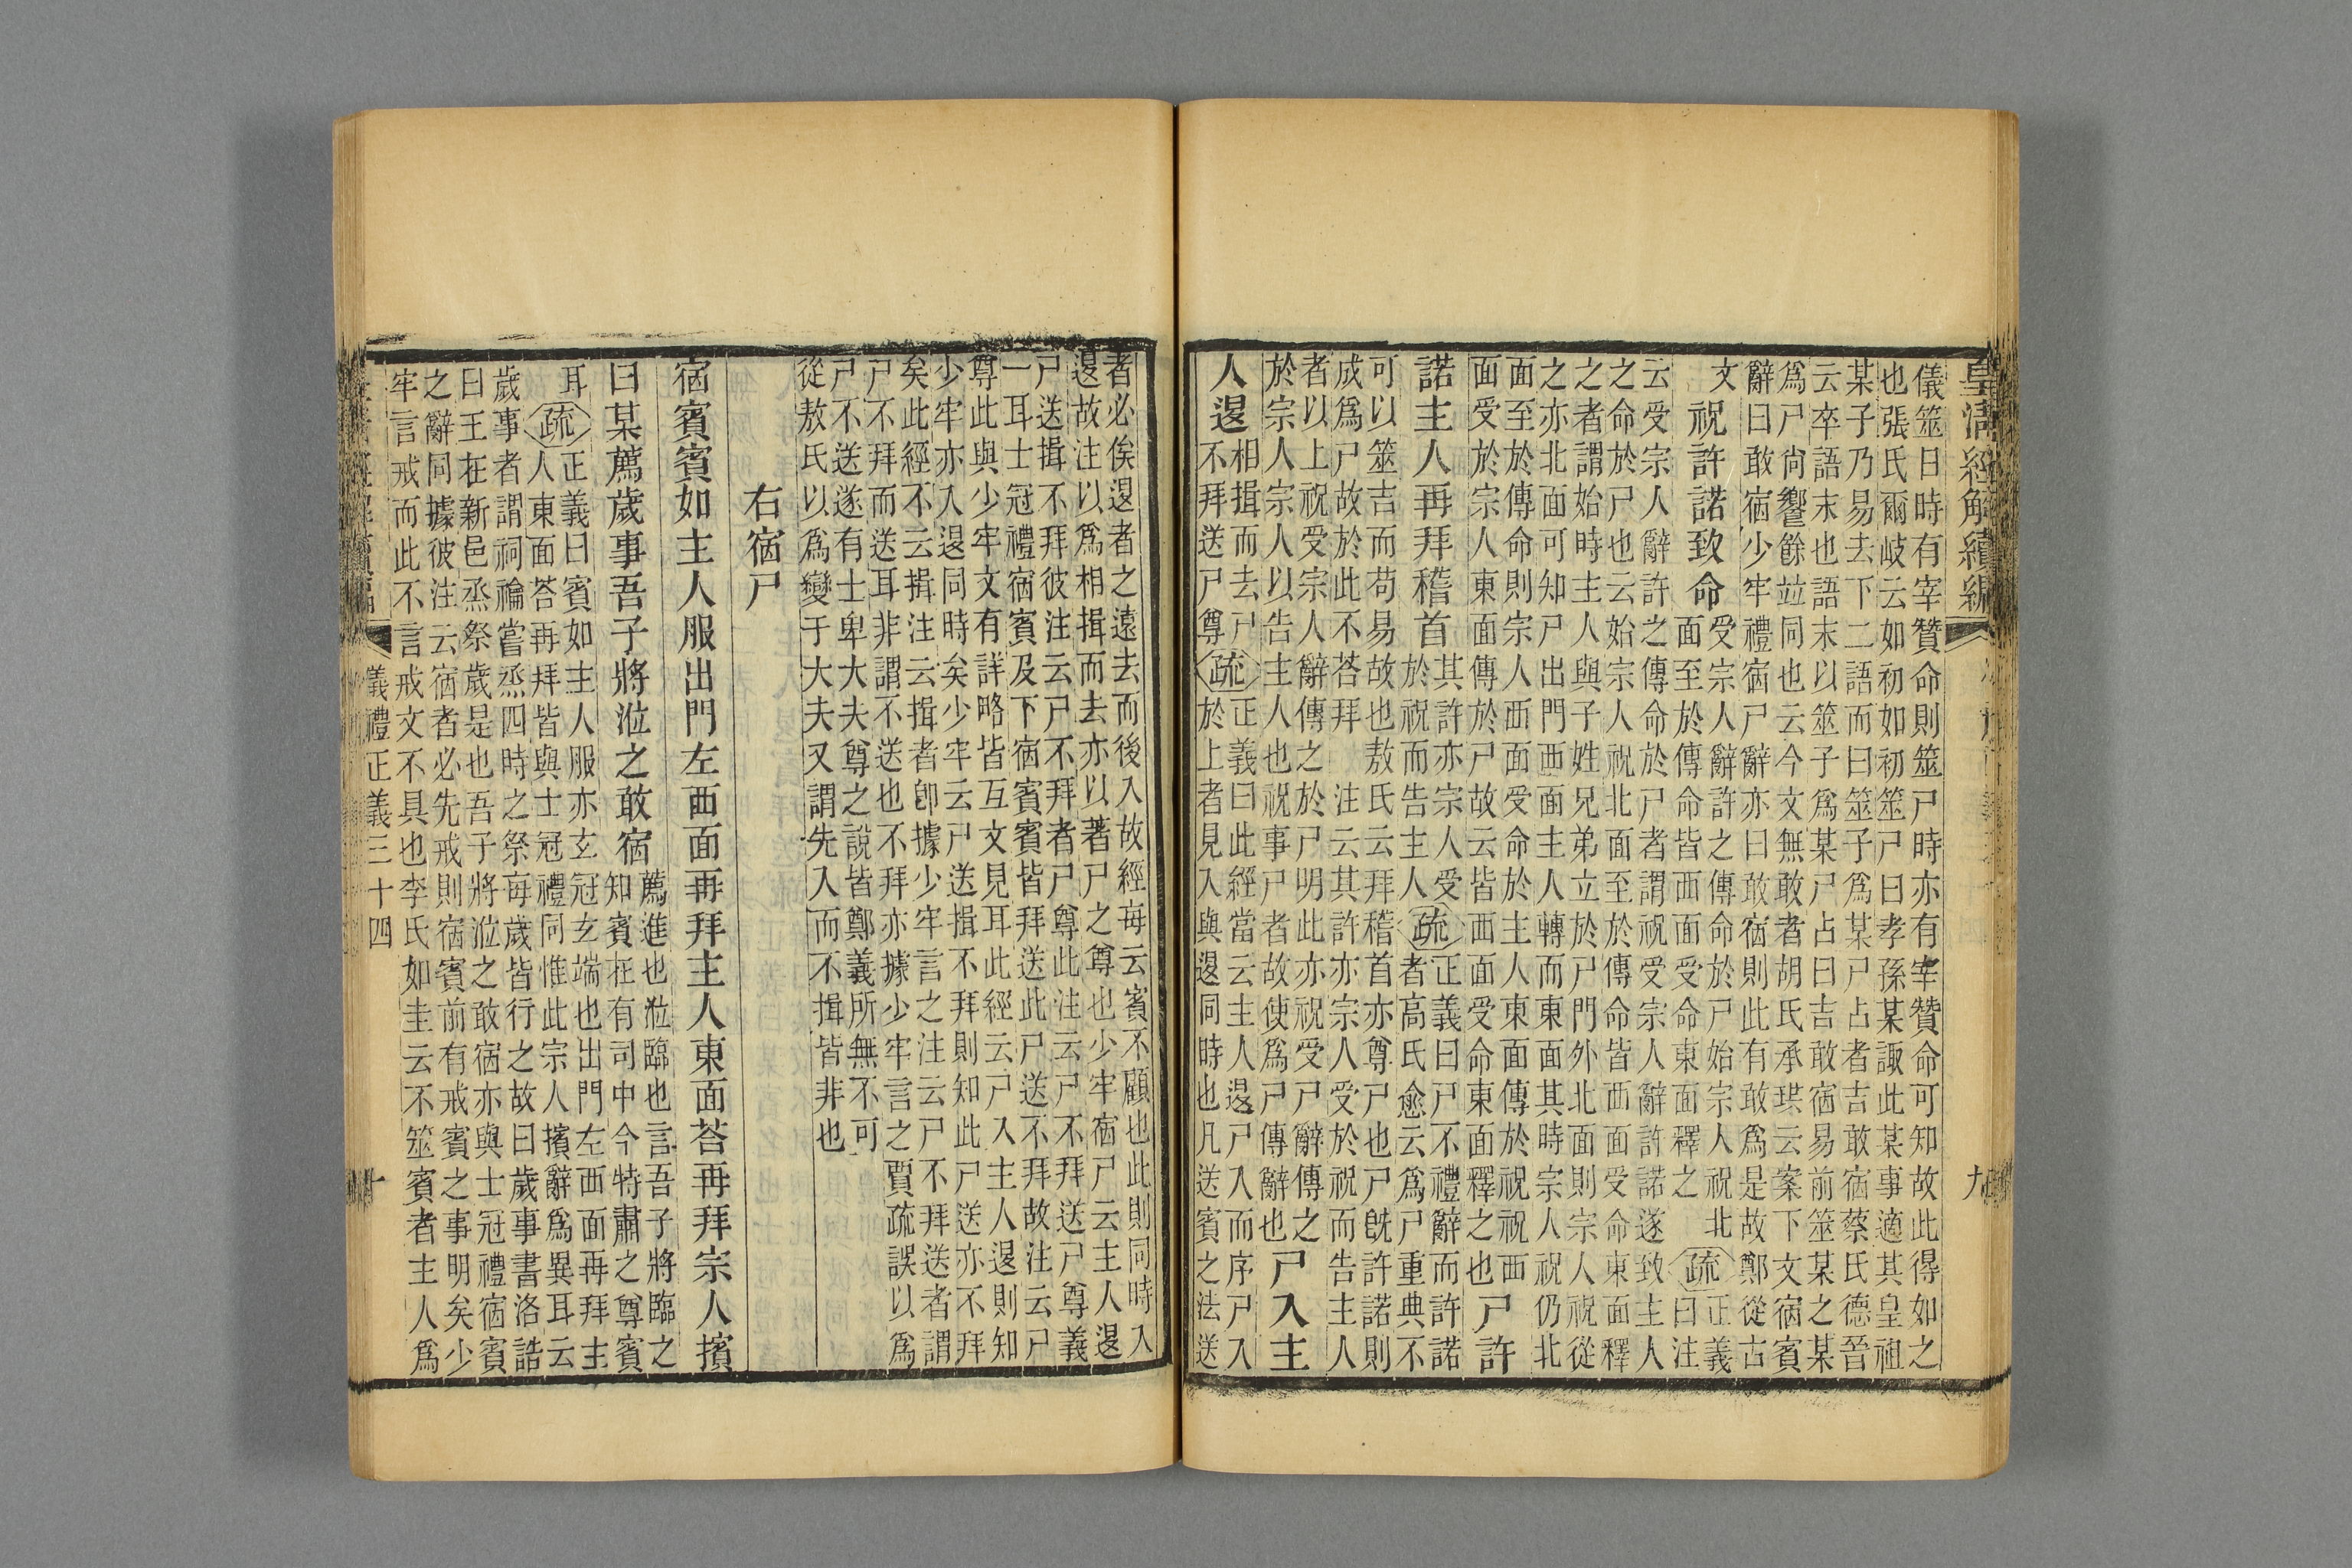 皇清經解續編
九
儀筮日時有宰贊命則筮尸時亦有宰贊命可知故此得如之
也張氏爾岐云如初如初筮尸曰孝孫某諏此某事適其皇祖
某子乃易去下二語而曰筮子爲某尸占者吉敢宿蔡氏德晉
云卒語末也語末以筮子爲某尸占曰吉敢宿易前筮某之某
爲尸尙饗餘竝同也云今文無敢者胡氏承珙云案下文宿賓
辭曰敢宿少牢禮宿尸辭亦曰敢宿則此有敢爲是故鄭從古
文
祝許諾致命
受宗人辭許之傳命於尸始宗人祝北
面至於傳命皆西面受命東面釋之
疏
正義
曰注
云受宗人辭許之傳命於尸者謂祝受宗人辭許諾遂致主人
之命於尸也云始宗人祝北面至於傳命皆西面受命東面釋
之者謂始時主人與子姓兄弟立於尸門外北面則宗人祝從
之亦北面可知尸出門西面主人轉而東面其時宗人祝仍北
面至於傳命則宗人西面受命於主人東面傳於祝祝西
面受於宗人東面傳於尸故云皆西面受命東面釋之也
尸許
諾主人再拜稽首
其許亦宗人受
於祝而告主人
疏
正義曰尸不禮辭而許諾
者高氏愈云爲尸重典不
可以筮吉而苟易故也敖氏云拜稽首亦尊尸也尸旣許諾則
成爲尸故於此不荅拜 注云其許亦宗人受於祝而告主人
者以上祝受宗人辭傳之於尸明此亦祝受尸辭傳之
於宗人宗人以告主人也祝事尸者故使爲尸傳辭也
尸入主
人退
相揖而去尸
不拜送尸尊
疏
正義曰此經當云主人退尸入而序尸入
於上者見入與退同時也凡送賓之法送
者必俟退者之遠去而後入故經每云賓不顧也此則同時入
退故注以爲相揖而去亦以著尸之尊也少牢宿尸云主人退
尸送揖不拜彼注云尸不拜者尸尊此注云尸不拜送尸尊義
一耳士冠禮宿賓及下宿賓賓皆拜送此尸送不拜故注云尸
尊此與少牢文有詳略皆互文見耳此經云尸入主人退則知
少牢亦入退同時矣少牢云尸送揖不拜則知此尸送亦不拜
矣此經不云揖注云揖者卽據少牢言之注云尸不拜送者謂
尸不拜而送耳非謂不送也不拜亦據少牢言之賈疏誤以爲
尸不送遂有士卑大夫尊之說皆鄭義所無不可
從敖氏以爲變于大夫又謂先入而不揖皆非也
右宿尸
宿賓賓如主人服出門左西面再拜主人東面荅再拜宗人擯
曰某薦歲事吾子將涖之敢宿
薦進也涖臨也言吾子將臨之
知賓在有司中今特肅之尊賓
耳
疏
正義曰賓如主人服亦玄冠玄端也出門左西面再拜主
人東面荅再拜皆與士冠禮同惟此宗人擯辭爲異耳云
歲事者謂祠禴嘗烝四時之祭每歲皆行之故曰歲事書洛誥
曰王在新邑烝祭歲是也吾子將涖之敢宿亦與士冠禮宿賓
之辭同據彼注云宿者必先戒則宿賓前有戒賓之事明矣少
牢言戒而此不言戒文不具也李氏如圭云不筮賓者主人爲
儀禮正義三十四
十